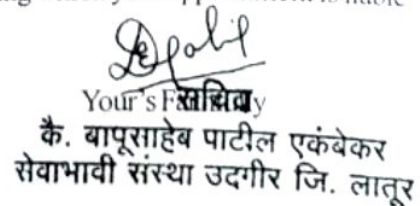 is liable
Your's Faithfully
सचिव
कै. बापूसाहेब पाटील एकंबेकर
सेवाभावी संस्था उदगीर जि. लातूर